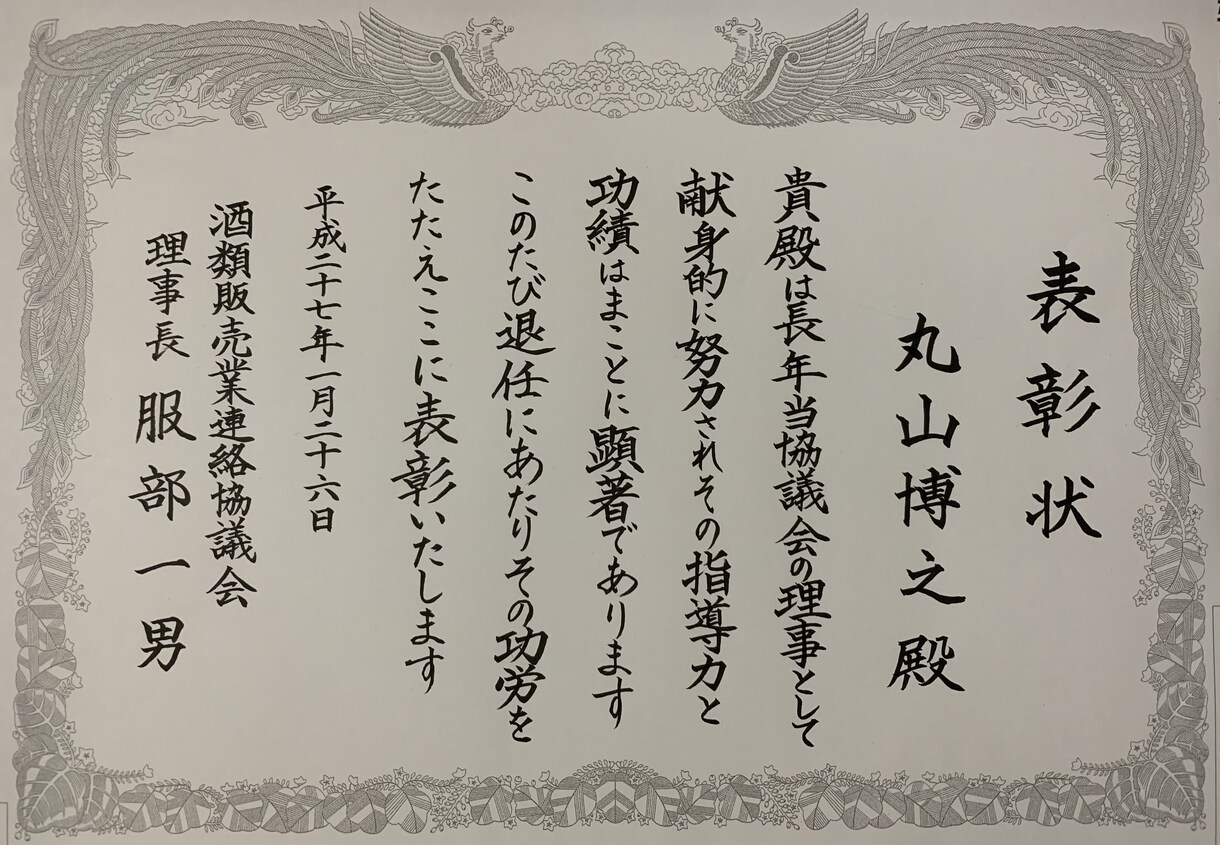 表彰状
丸山博之殿
貴殿は長年当協議会の理事として
献身的に努力されその指導力と
功績はまことに顕著であります
このたび退任にあたりその功労を
たたえここに表彰いたします
平成二十七年一月二十六日
酒類販売業連絡協議会
理事長 服部一男